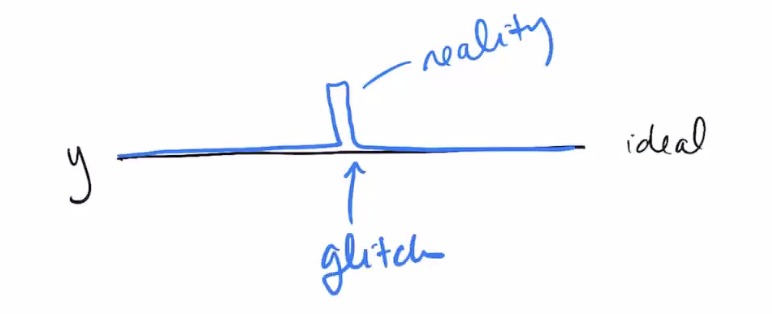 reality
y ideal
glitch